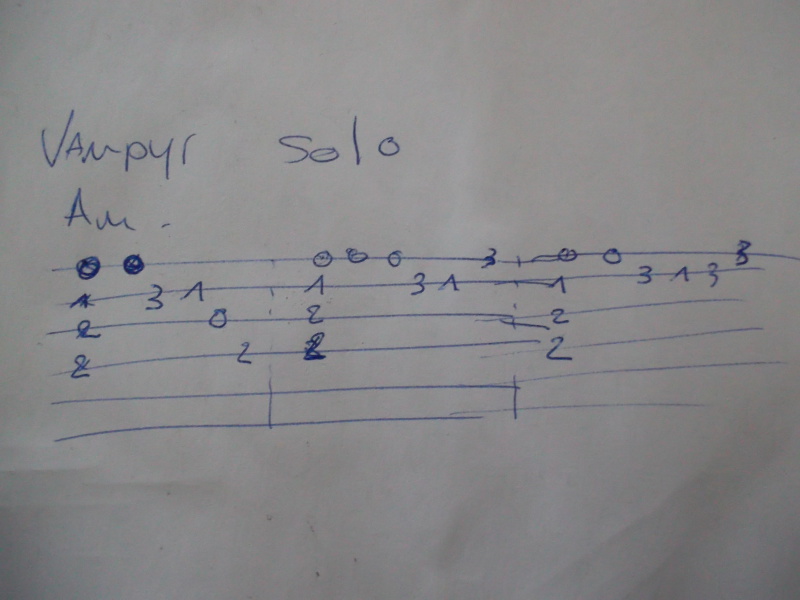 Vampyr Solo
Am.
0 0 0 0 0 3 0 0 3
1 3 1 1 3 1 1 3 1 3
2 0 2 2
2 2 2 2